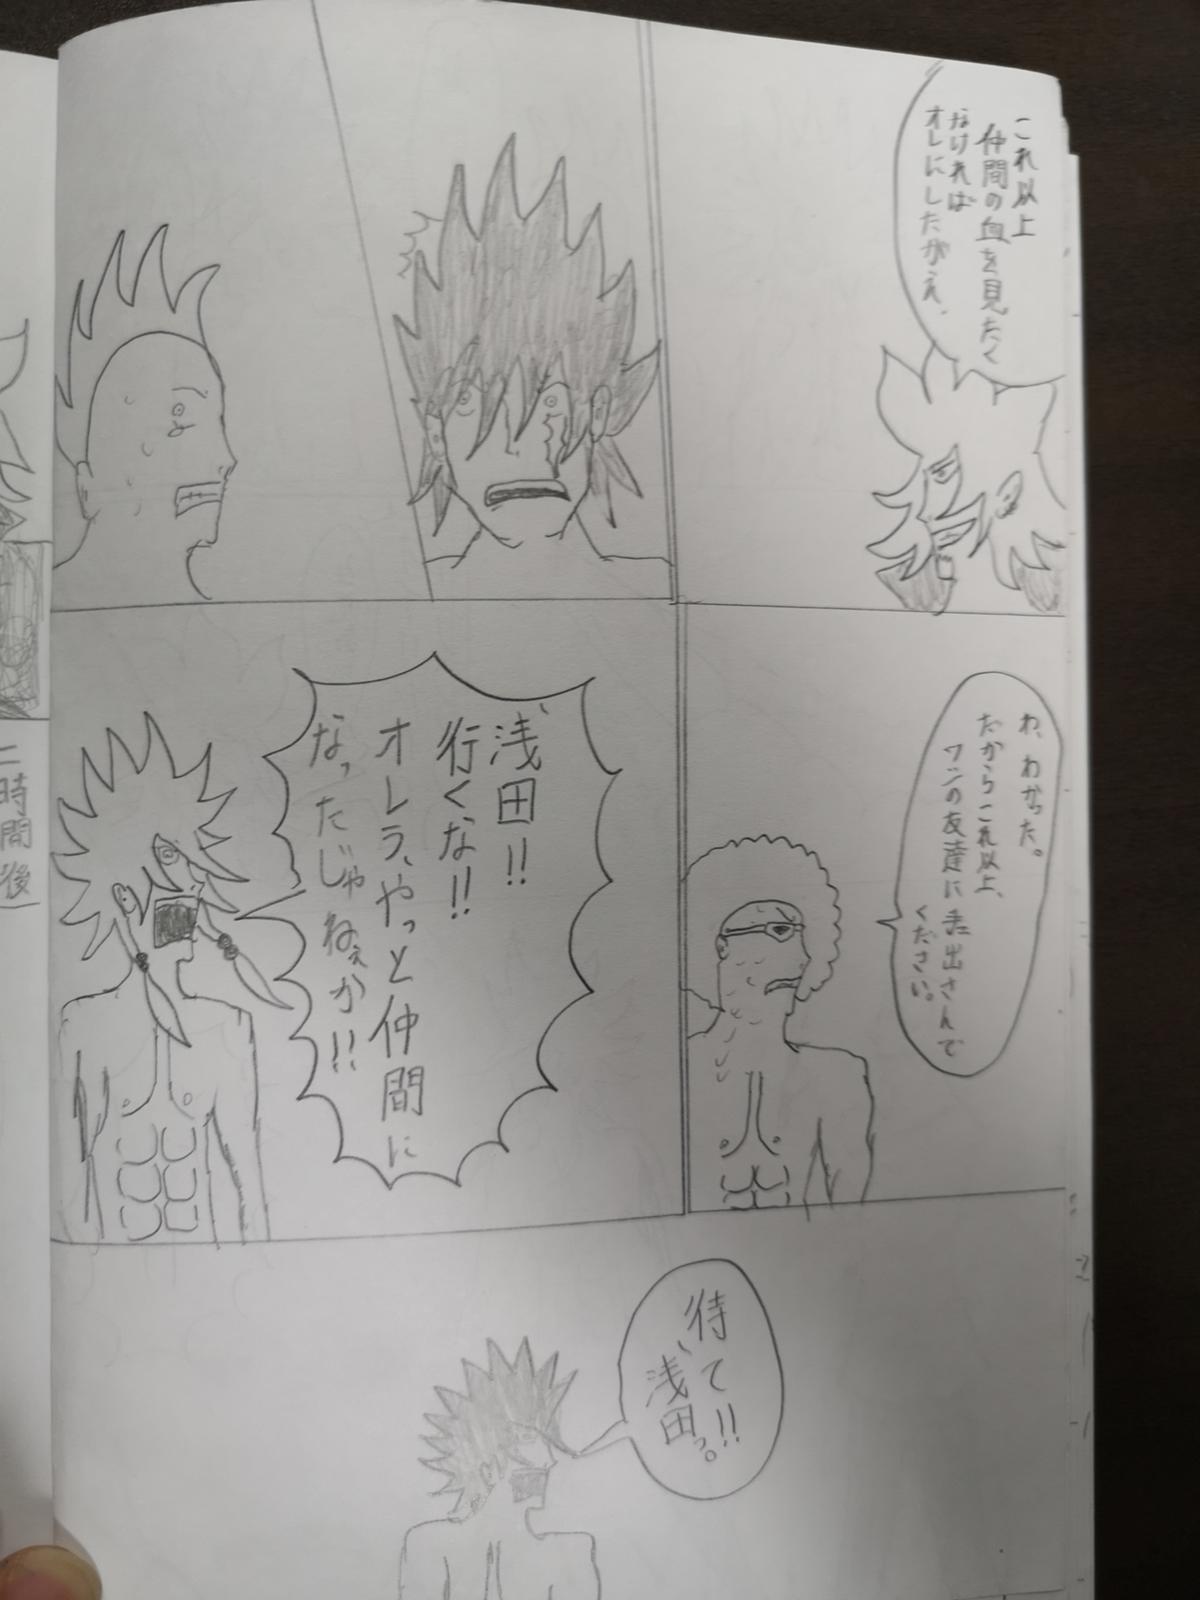 これ以上
仲間の血を見たく
なければ
オレにしたがえ、
わ、わかった。
だからこれ以上、
ワシの友達に手出さんで
ください。
浅田!!
行くな!!
オレラ、やっと仲間に
なったじゃねぇか!!
待て!!
浅田っ。
二時間後